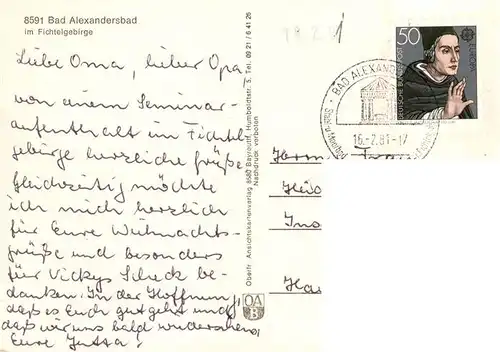 8591 Bad Alexandersbad
im Fichtelgebirge
Liebe Oma, lieber Opa
von einem Seminar-
aufenthalt im Fichtel
gebirge herzliche Grüße
Gleichzeitig möchte
ich mich herzlich
für Eure Weihnachts-
grüße und besonders
für Vickys Scheck be-
danken. In der Hoffnung,
daß es Euch gut geht und
daß wir uns bald wiedersehen,
Eure Jutta.
Oberfr. Ansichtskartenverlag 8580 Bayreuth, Humboldtstr. 3, Tel. 09 21 / 6 41 26
Nachdruck verboten
OA
B
50
EUROPA
CEPT
DEUTSCHE BUNDESPOST
BAD ALEXAND
16.-2.81-17
Herrn